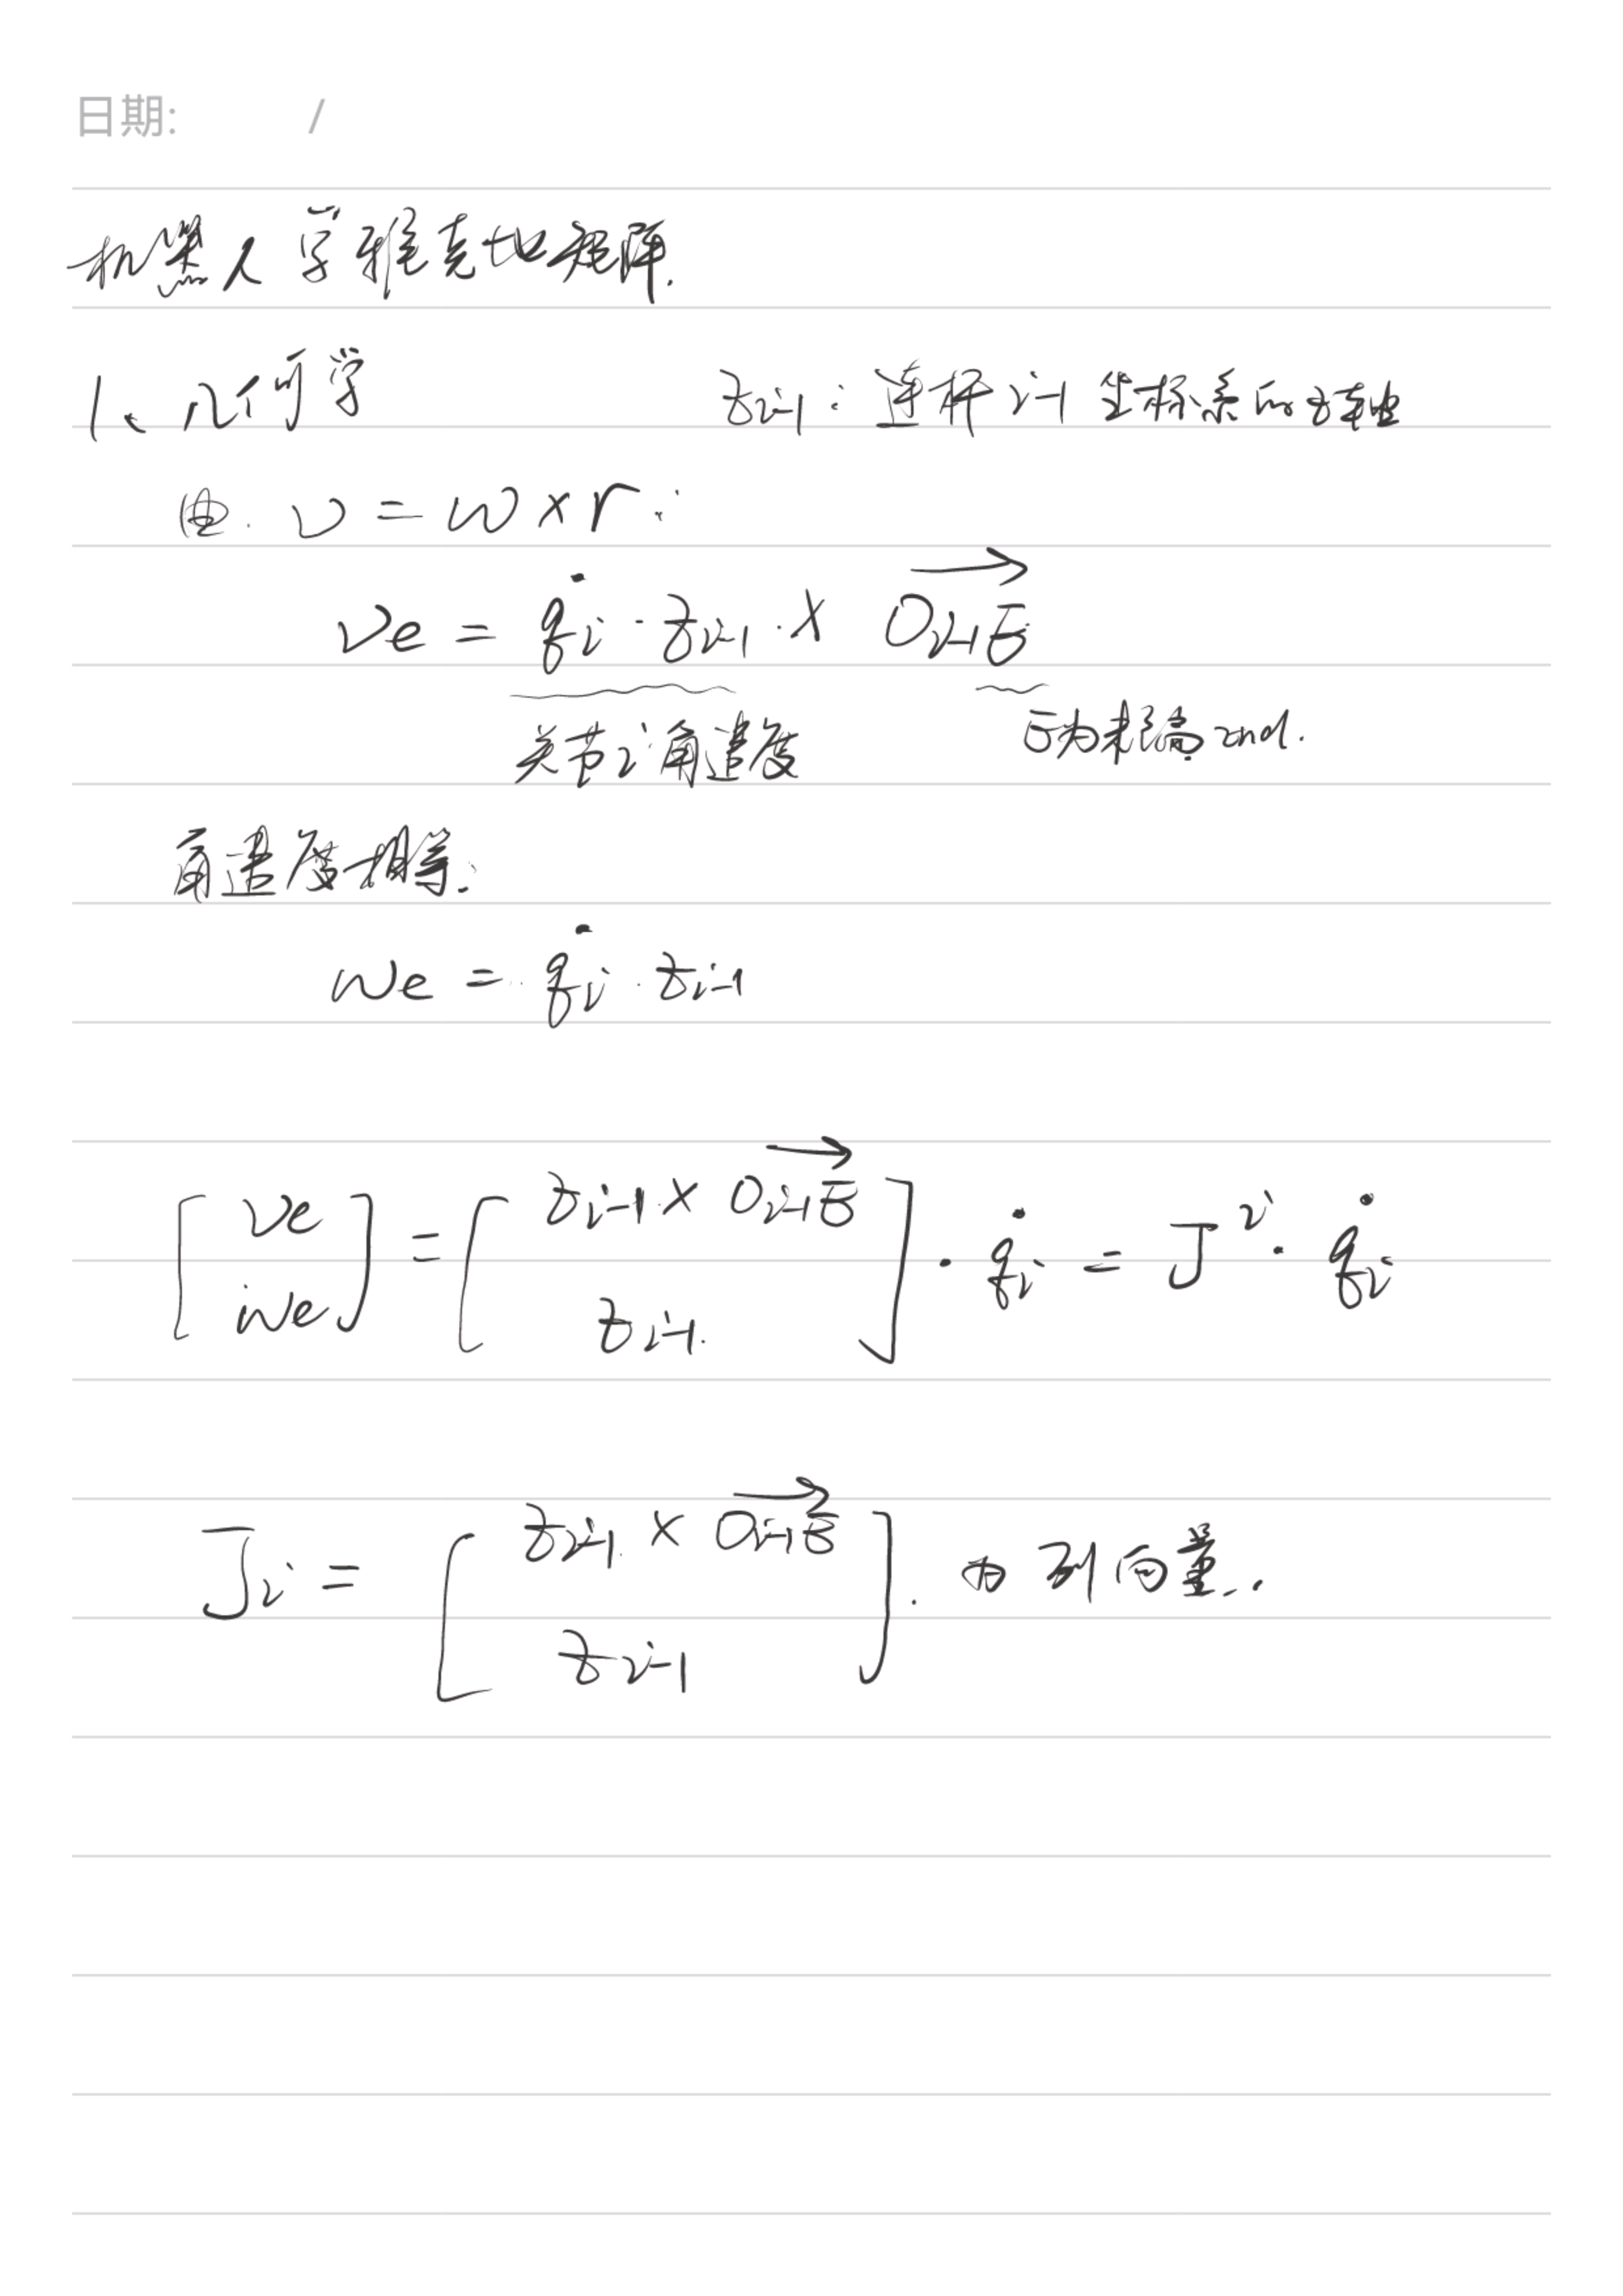 日期: /
机器人学雅克比矩阵.
1、几何学 z_{i-1}: 连杆 i-1 坐标系的z轴
由. v = w × r :
v_e = \dot{q}_i · z_{i-1} · × \overrightarrow{O_{i-1}E}
关节i角速度 E为末端end.
角速度相等.
w_e = \dot{q}_i · z_{i-1}
[v_e; w_e] = [z_{i-1} × \overrightarrow{O_{i-1}E}; z_{i-1}] · \dot{q}_i = J^i · \dot{q}_i
J_i = [z_{i-1} × \overrightarrow{O_{i-1}E}; z_{i-1}]. 为列向量.